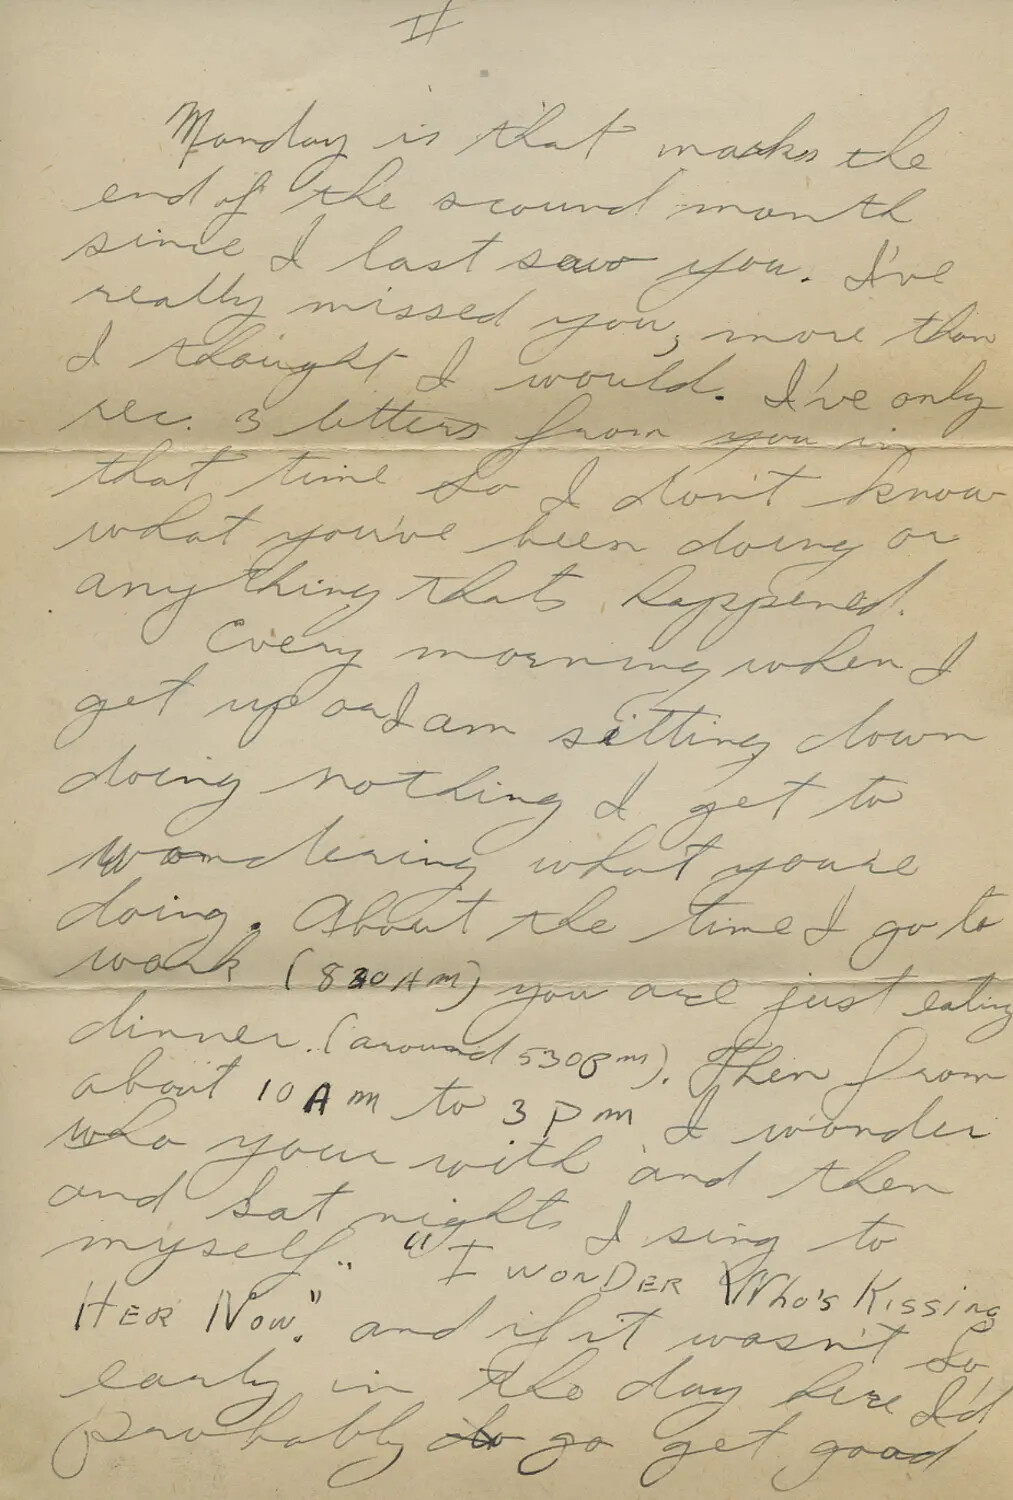 II
Monday is that marks the
end of the scound month
since I last saw you. I've
really missed you, more than
I thought I would. I've only
rec. 3 letters from you in
that time so I don't know
what you've been doing or
anything thats happened.
Every morning when I
get up or I am sitting down
doing nothing I get to
wondering what you're
doing. About the time I go to
work (830 AM) you are just eating
dinner. (around 530 Pm). Then from
about 10 Am to 3 pm I wonder
who your with and then
and Sat nights I sing to
myself.. "I WONDER Who's Kissing
HER Now". and if it wasn't so
early in the day here I'd
probably go get good